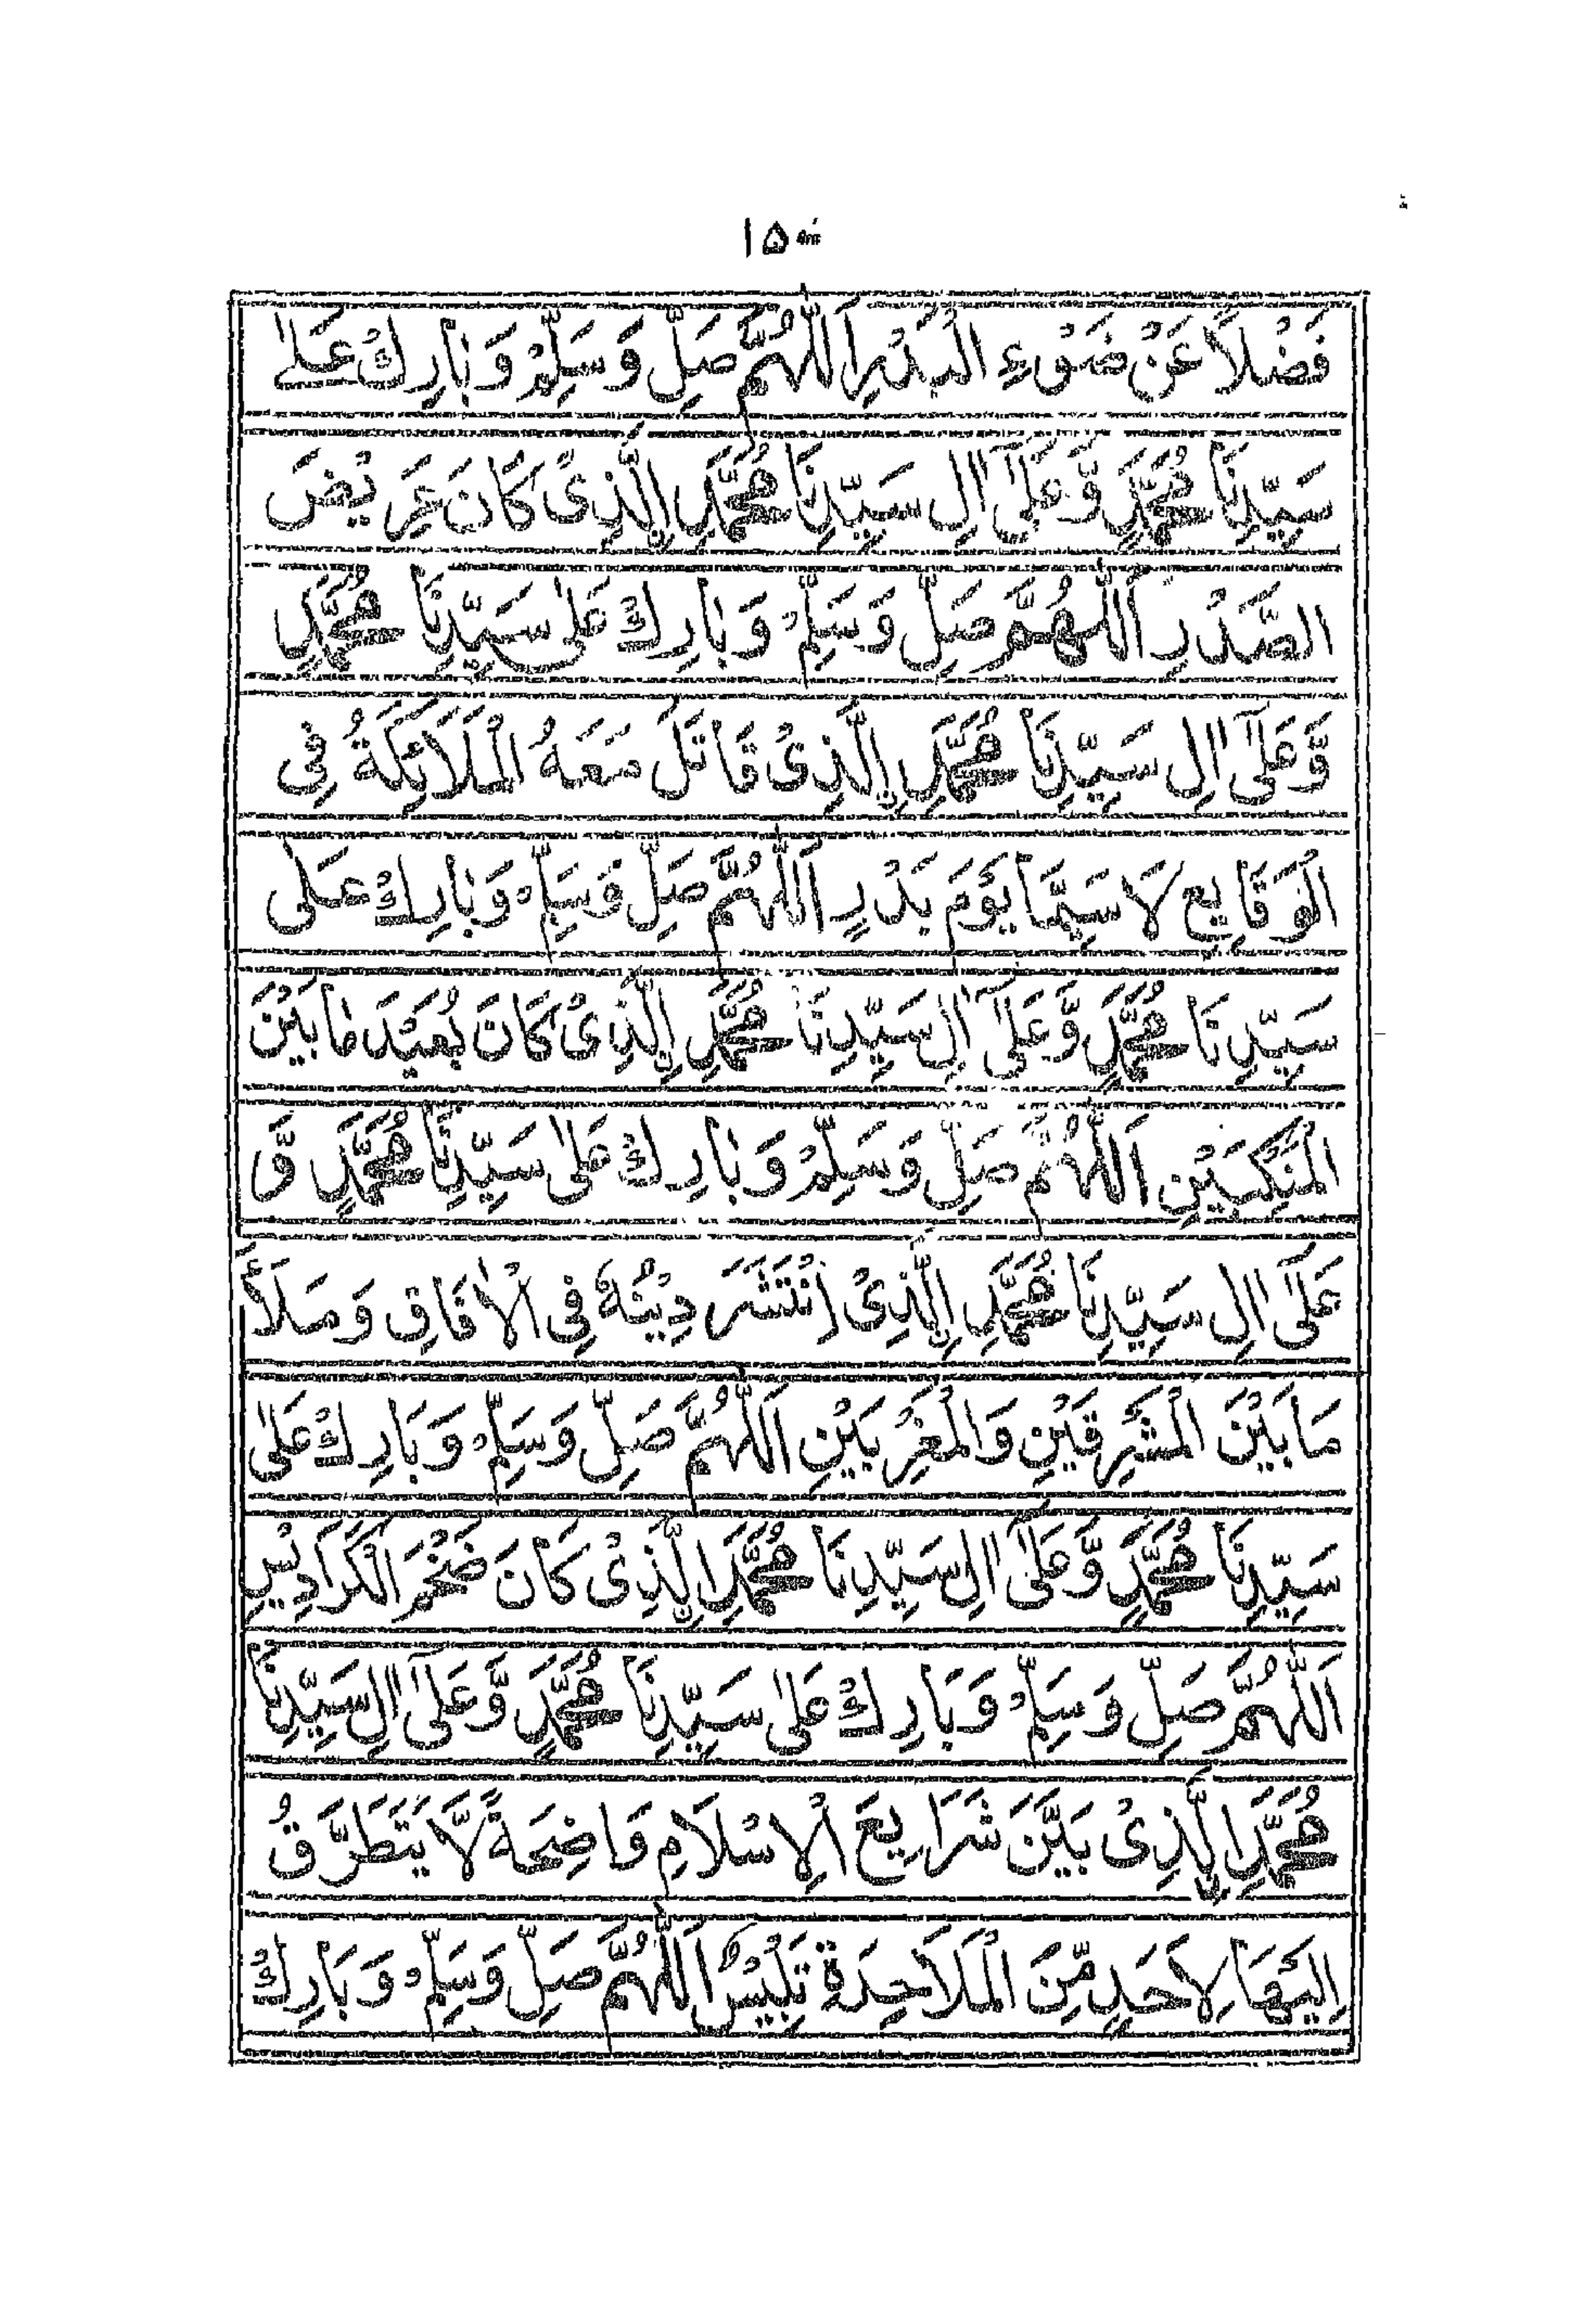 ۱۵۰
فَضْلًا عَنْ ضَوْءِ الْبَدْرِ اَللّٰهُمَّ صَلِّ وَسَلِّمْ وَبَارِكْ عَلٰى
سَيِّدِنَا مُحَمَّدٍ وَّعَلٰٓى اٰلِ سَيِّدِنَا مُحَمَّدِ ۣالَّذِىْ كَانَ عَرِيْضَ
الصَّدْرِ اَللّٰهُمَّ صَلِّ وَسَلِّمْ وَبَارِكْ عَلٰى سَيِّدِنَا مُحَمَّدٍ
وَّعَلٰٓى اٰلِ سَيِّدِنَا مُحَمَّدِ ۣالَّذِىْ قَاتَلَ مَعَهُ الْمَلَائِكَةُ فِى
الْوَقَايِعِ لَاسِيَّمَا يَوْمَ بَدْرٍ اَللّٰهُمَّ صَلِّ وَسَلِّمْ وَبَارِكْ عَلٰى
سَيِّدِنَا مُحَمَّدٍ وَّعَلٰٓى اٰلِ سَيِّدِنَا مُحَمَّدِ ۣالَّذِىْ كَانَ بَعِيْدَ مَا بَيْنَ
الْمَنْكِبَيْنِ اَللّٰهُمَّ صَلِّ وَسَلِّمْ وَبَارِكْ عَلٰى سَيِّدِنَا مُحَمَّدٍ وَّ
عَلٰٓى اٰلِ سَيِّدِنَا مُحَمَّدِ ۣالَّذِىْ انْتَشَرَ دِيْنُهٗ فِى الْاٰفَاقِ وَمَلَأَ
مَا بَيْنَ الْمَشْرِقَيْنِ وَالْمَغْرِبَيْنِ اَللّٰهُمَّ صَلِّ وَسَلِّمْ وَبَارِكْ عَلٰى
سَيِّدِنَا مُحَمَّدٍ وَّعَلٰٓى اٰلِ سَيِّدِنَا مُحَمَّدِ ۣالَّذِىْ كَانَ ضَخْمَ الْكَرَادِيْسِ
اَللّٰهُمَّ صَلِّ وَسَلِّمْ وَبَارِكْ عَلٰى سَيِّدِنَا مُحَمَّدٍ وَّعَلٰٓى اٰلِ سَيِّدِنَا
مُحَمَّدِ ۣالَّذِىْ بَيَّنَ شَرَايِعَ الْاِسْلَامِ وَاضِحَةً لَّا يَتَطَرَّقُ
اِلَيْهَا لِاَحَدٍ مِّنَ الْمَلَاحِدَةِ تَلْبِيْسٌ اَللّٰهُمَّ صَلِّ وَسَلِّمْ وَبَارِكْ